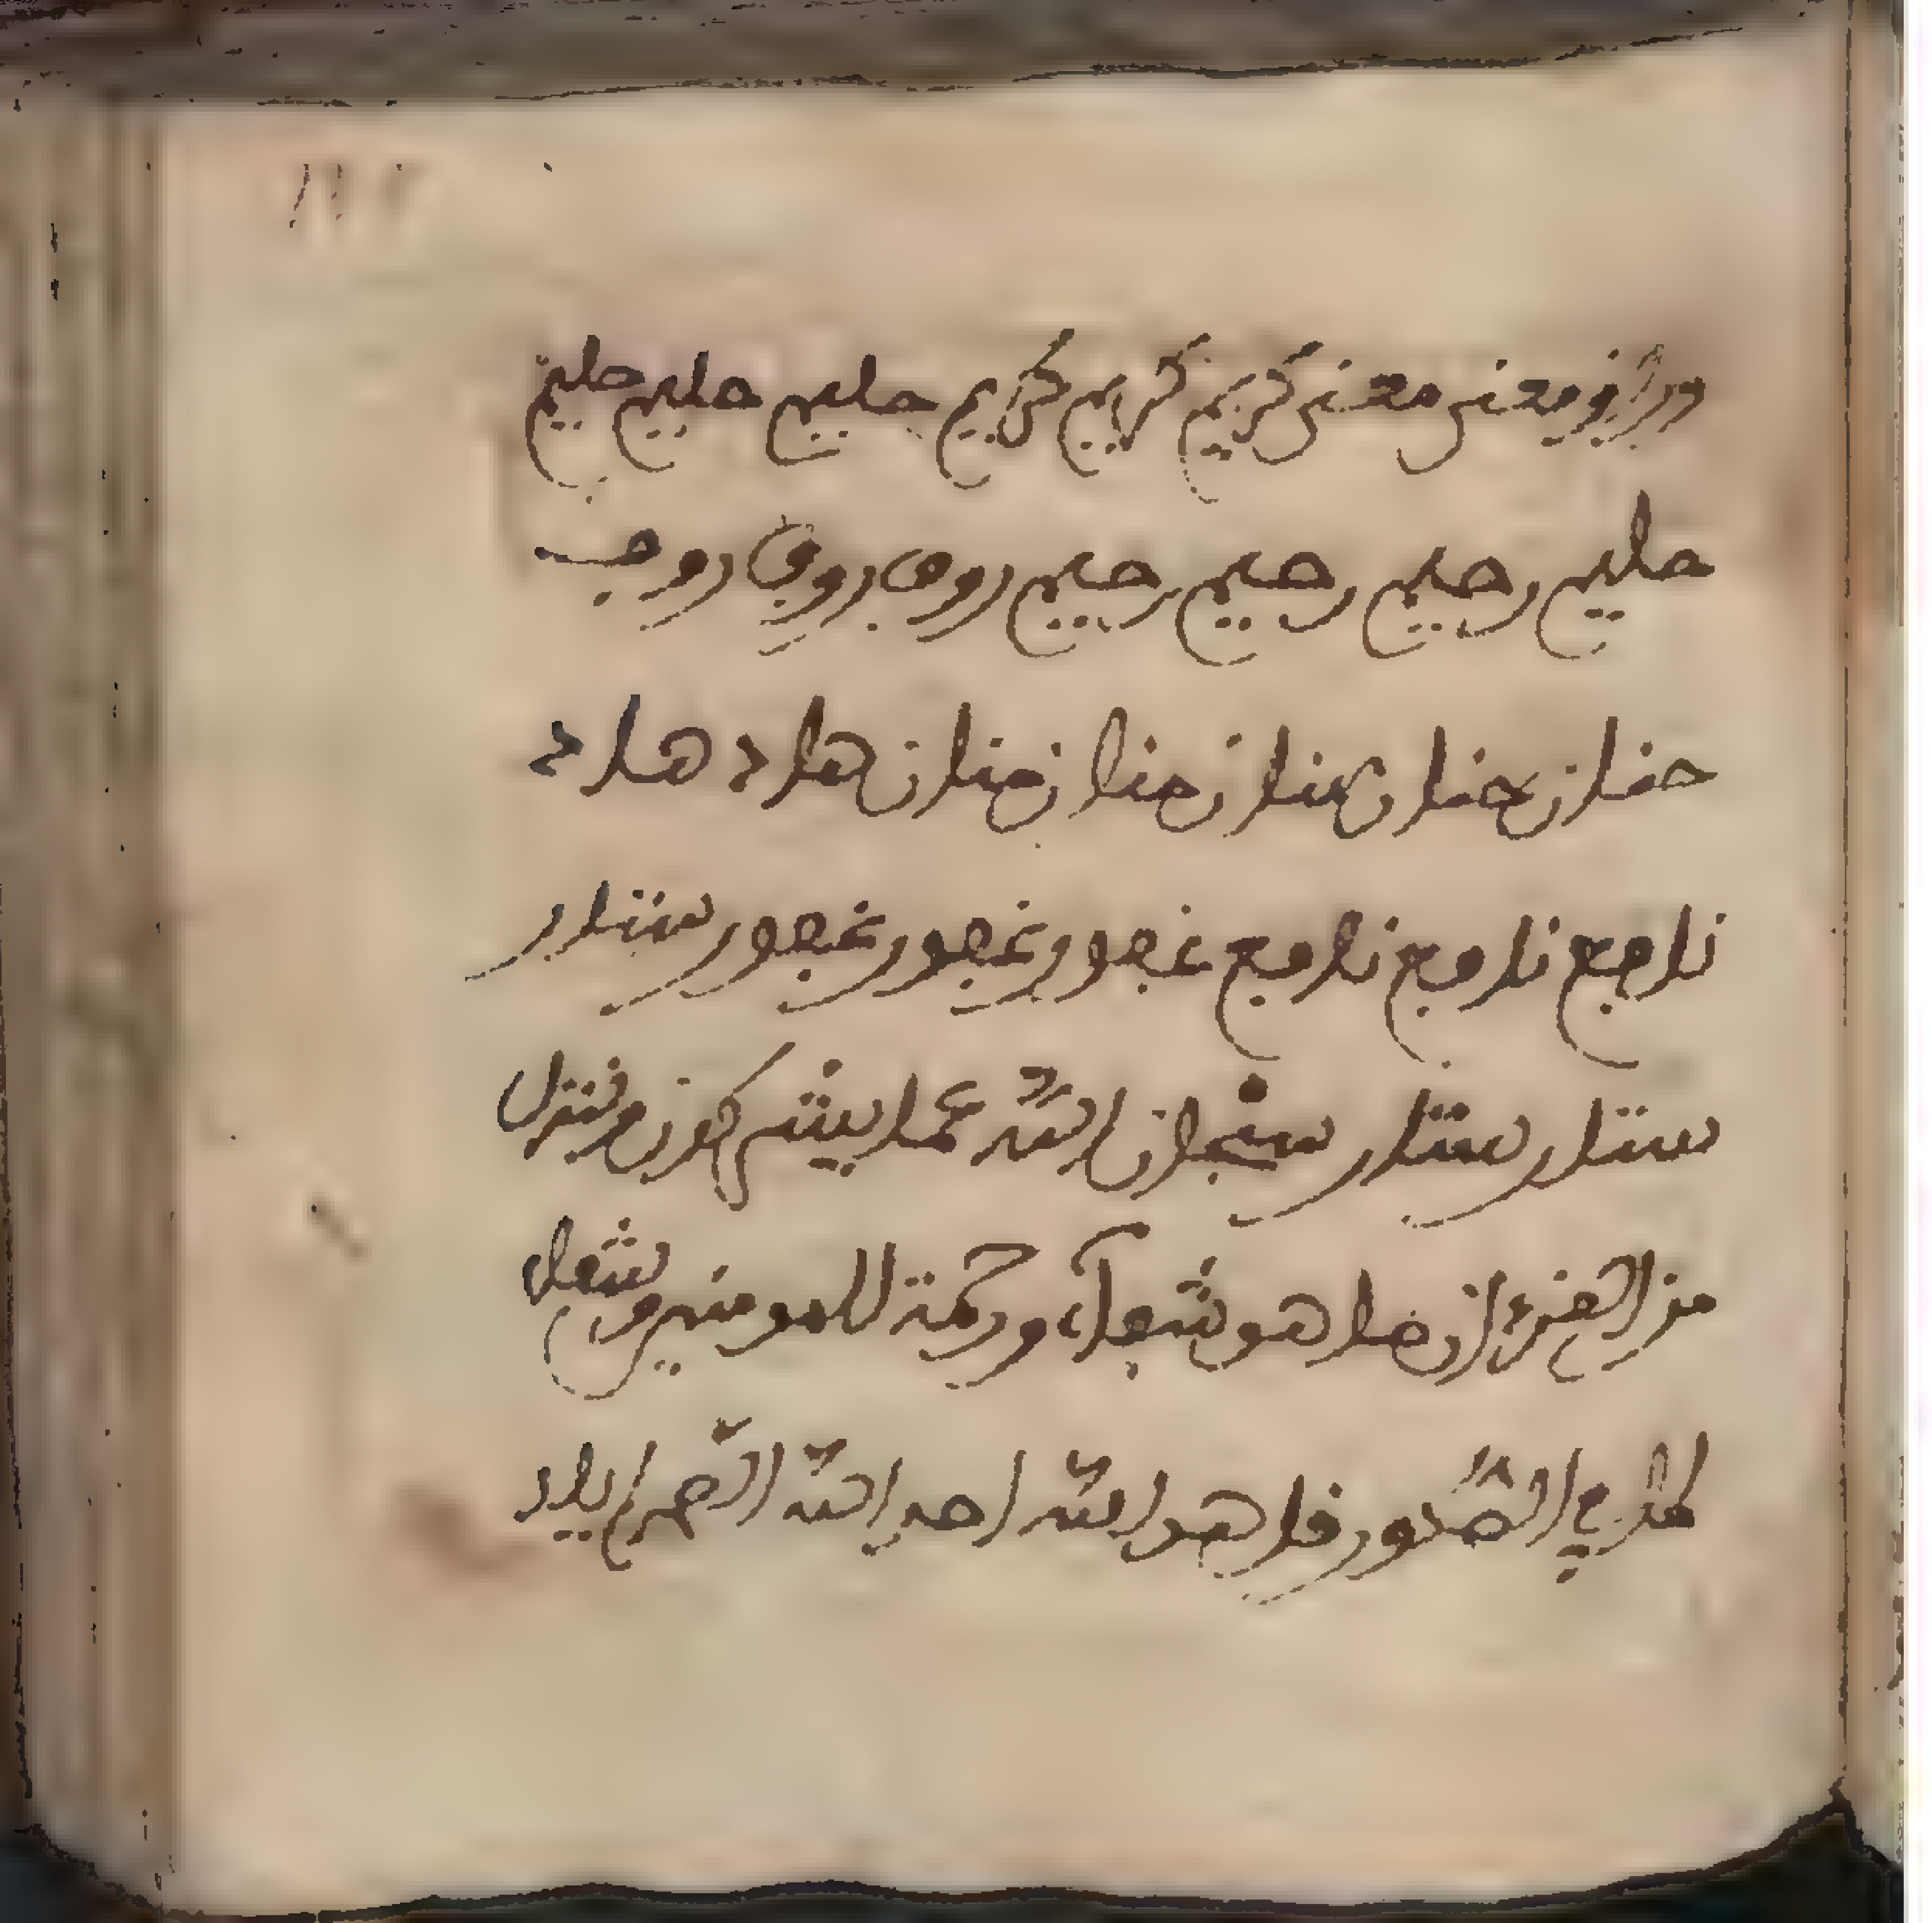 ورزاق ومعنى معنى كريم كريم كريم حليم حليم حليم
حليم رحيم رحيم رحيم روف روف روف
حنان حنان حنان منان منان منان هاد هاد
نافع نافع نافع غفور غفور غفور ستار
ستار ستار سبحان الله عما يشركون وننزل
من القرءان ما هو شفآء ورحمة للمومنين وشفآء
لما في الصدور قل هو الله احد الله الصمد لم يلد